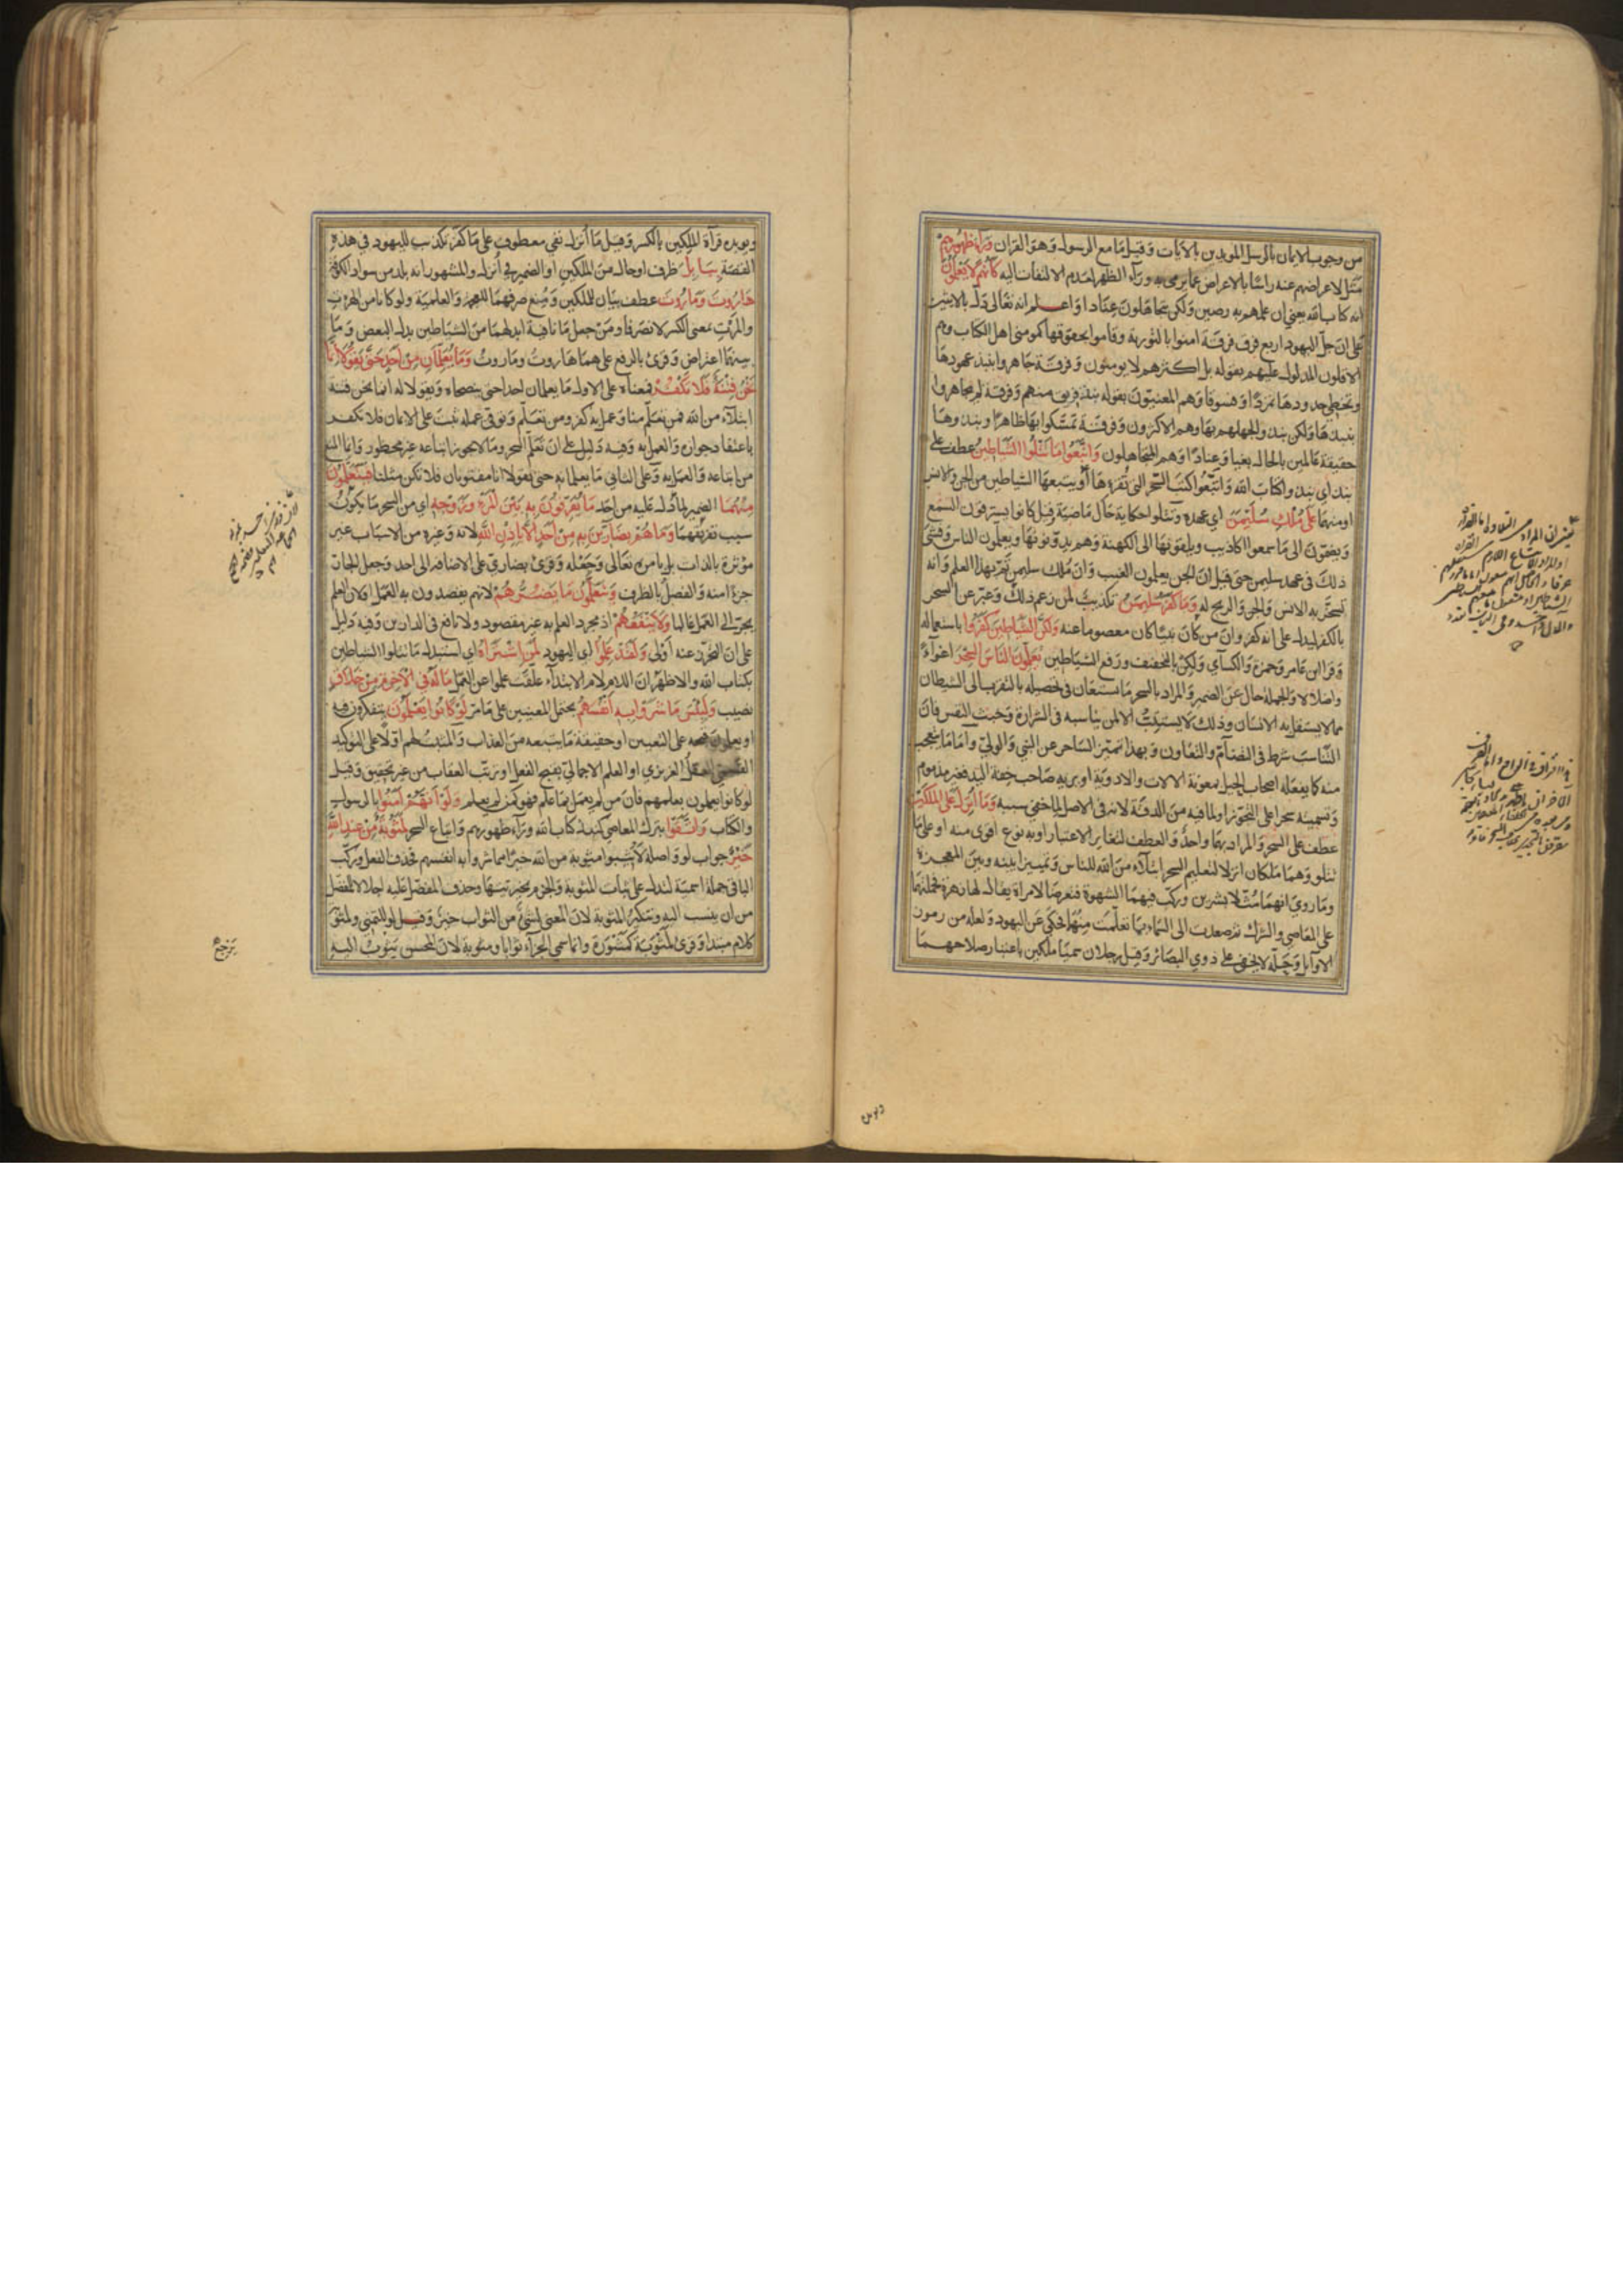 من وجوب الايمان بالرسل المويدين بالايات وقيل ما مع الرسول وهو القران وراء ظهورهم
مثل لاعراضهم عنه راسا بالاعراض عما يرمى به ورآء الظهر لعدم الالتفات اليه كانهم لا يعلمون
انه كتاب الله يعني ان علمهم به رصين ولكن يتجاهلون عنادا واعلم انه تعالى دل بالايتين
على ان جل اليهود اربع فرق فرقة امنوا بالتورية وقاموا بحقوقها كمومني اهل الكتاب وهم
الاقلون المدلول عليهم بقوله بل اكثرهم لا يومنون وفرقة جاهروا بنبذ عهودها
وتخطي حدودها تمردا وفسوقا وهم المعنيون بقوله نبذ فريق منهم وفرقة لم يجاهروا
بنبذها ولكن نبذوا لجهلهم بها وهم الاكثرون وفرقة تمسكوا بها ظاهرا ونبذوها
حقيقة عالمين بالحال بغيا وعنادا وهم المتجاهلون واتبعوا ما تتلوا الشياطين عطف على
نبذ اي نبذوا كتاب الله واتبعوا كتب السحر التي تقرءها او يتبعها الشياطين من الجن والانس
او منهما على ملك سليمن اي عهده وتتلوا حكاية حال ماضية وقيل كانوا يسترقون السمع
ويضمون الى ما سمعوا اكاذيب ويلقونها الى الكهنة وهم يدونونها ويعلمون الناس وفشى
ذلك في عهد سليمن حتى قيل ان الجن يعلمون الغيب وان ملك سليمن تم بهذا العلم وانه
تسخر به الانس والجن والريح له وما كفر سليمن تكذيب لمن زعم ذلك وعبر عن السحر
بالكفر ليدل على انه كفر وان من كان نبيا كان معصوما عنه ولكن الشياطين كفروا باستعماله
وقرا ابن عامر وحمزة والكسآي ولكن بالتخفيف ورفع الشياطين يعلمون الناس السحر اغوآء
واضلالا والجملة حال عن الضمير والمراد بالسحر ما يستعان في تحصيله بالتقرب الى الشيطان
مما لا يستقل به الانسان وذلك لا يستتب الا لمن يناسبه في الشرارة وخبث النفس فان
التناسب شرط في التضام والتعاون وبهذا تميز الساحر عن النبي والولي واما ما يتعجب
منه كما يفعله اصحاب الحيل بمعونة الالات والادوية او يريه صاحب خفة اليد فغير مذموم
وتسميته سحرا على التجوز او لما فيه من الدقة لانه في الاصل لما خفي سببه وما انزل على الملكين
عطف على السحر والمراد بهما واحد والعطف لتغاير الاعتبار او به نوع اقوى منه او على ما
تتلو وهما ملكان انزلا لتعليم السحر ابتلآء من الله للناس وتمييزا بينه وبين المعجزة
وما روي انهما مثلا بشرين وركب فيهما الشهوة فتعرضا لامراة يقال لها زهرة فحملتهما
على المعاصي والشرك ثم صعدت الى السماء بما تعلمت منهما فحكي عن اليهود ولعله من رموز
الاوآيل وحله لا يخفى على ذوي البصائر وقيل رجلان سميا ملكين باعتبار صلاحهما
ويويده
ويويده قرآة الملكين بالكسر وقيل ما انزل نفي معطوف على ما كفر تكذيب لليهود في هذه
القصة ببابل ظرف او حال من الملكين او الضمير في انزل والمشهور انه بلد من سواد الكوفة
هاروت وماروت عطف بيان للملكين ومنع صرفهما للعجمة والعلمية ولو كانا من الهرت
والمرت بمعنى الكسر لانصرفا ومن جعل ما نافية ابدلهما من الشياطين بدل البعض وما
بينهما اعتراض وقرئ بالرفع على هما هاروت وماروت وما يعلمان من احد حتى يقولا انما
نحن فتنة فلا تكفر فمعناه على الاول ما يعلمان احدا حتى ينصحاه ويقولا له انما نحن فتنة
ابتلآء من الله فمن تعلم منا وعمل به كفر ومن تعلم وتوقى عمله ثبت على الايمان فلا تكفر
باعتقاد جوازه والعمل به وفيه دليل على ان تعلم السحر وما لا يجوز اتباعه غير محظور وانما المنع
من اتباعه والعمل به وعلى الثاني ما يعلمانه حتى يقولا انا مفتونان فلا تكن مثلنا فيتعلمون
منهما الضمير لما دل عليه من احد ما يفرقون به بين المرء وزوجه اي من السحر ما يكون
سبب تفريقهما وما هم بضارين به من احد الا باذن الله لانه وغيره من الاسباب غير
موثرة بالذات بل بامره تعالى وجعله وقرئ بضاري على الاضافة الى احد وجعل الجار
جزءا منه والفصل بالظرف ويتعلمون ما يضرهم لانهم يقصدون به العمل او لان العلم
يجر الى العمل غالبا ولا ينفعهم اذ مجرد العلم به غير مقصود ولا نافع في الدارين وفيه دليل
على ان التحرز عنه اولى ولقد علموا اي اليهود لمن اشتراه اي استبدل ما تتلوا الشياطين
بكتاب الله والاظهر ان اللام لام الابتدآء علقت علموا عن العمل ما له في الاخرة من خلاق
نصيب ولبئس ما شروا به انفسهم يحتمل المعنيين على ما مر لو كانوا يعلمون يتفكرون فيه
او يعلمون قبحه على التعيين او حقيقة ما يتبعه من العذاب والمثبت لهم اولا على التوكيد
القسمي العقل الغريزي او العلم الاجمالي بقبح الفعل او ترتب العقاب من غير تحقيق وقيل
لو كانوا يعملون بعلمهم فان من لم يعمل بما علم فهو كمن لم يعلم ولو انهم آمنوا بالرسول
والكتاب واتقوا بترك المعاصي كنبذ كتاب الله ورآء ظهورهم واتباع السحر لمثوبة من عند الله
خير جواب لو واصله لاثيبوا مثوبة من الله خيرا مما شروا به انفسهم فحذف الفعل وركب
الباقي جملة اسمية لتدل على ثبات المثوبة والجزم بخيريتها وحذف المفضل عليه اجلالا للمفضل
من ان ينسب اليه وتنكير المثوبة لان المعنى لشيئ من الثواب خير وقيل لو للتمني ولمثوبة
كلام مبتدا وقرئ لمثوبة كمشورة وانما سمي الجزآء ثوابا ومثوبة لان المحسن يثوب اليه
يرجع